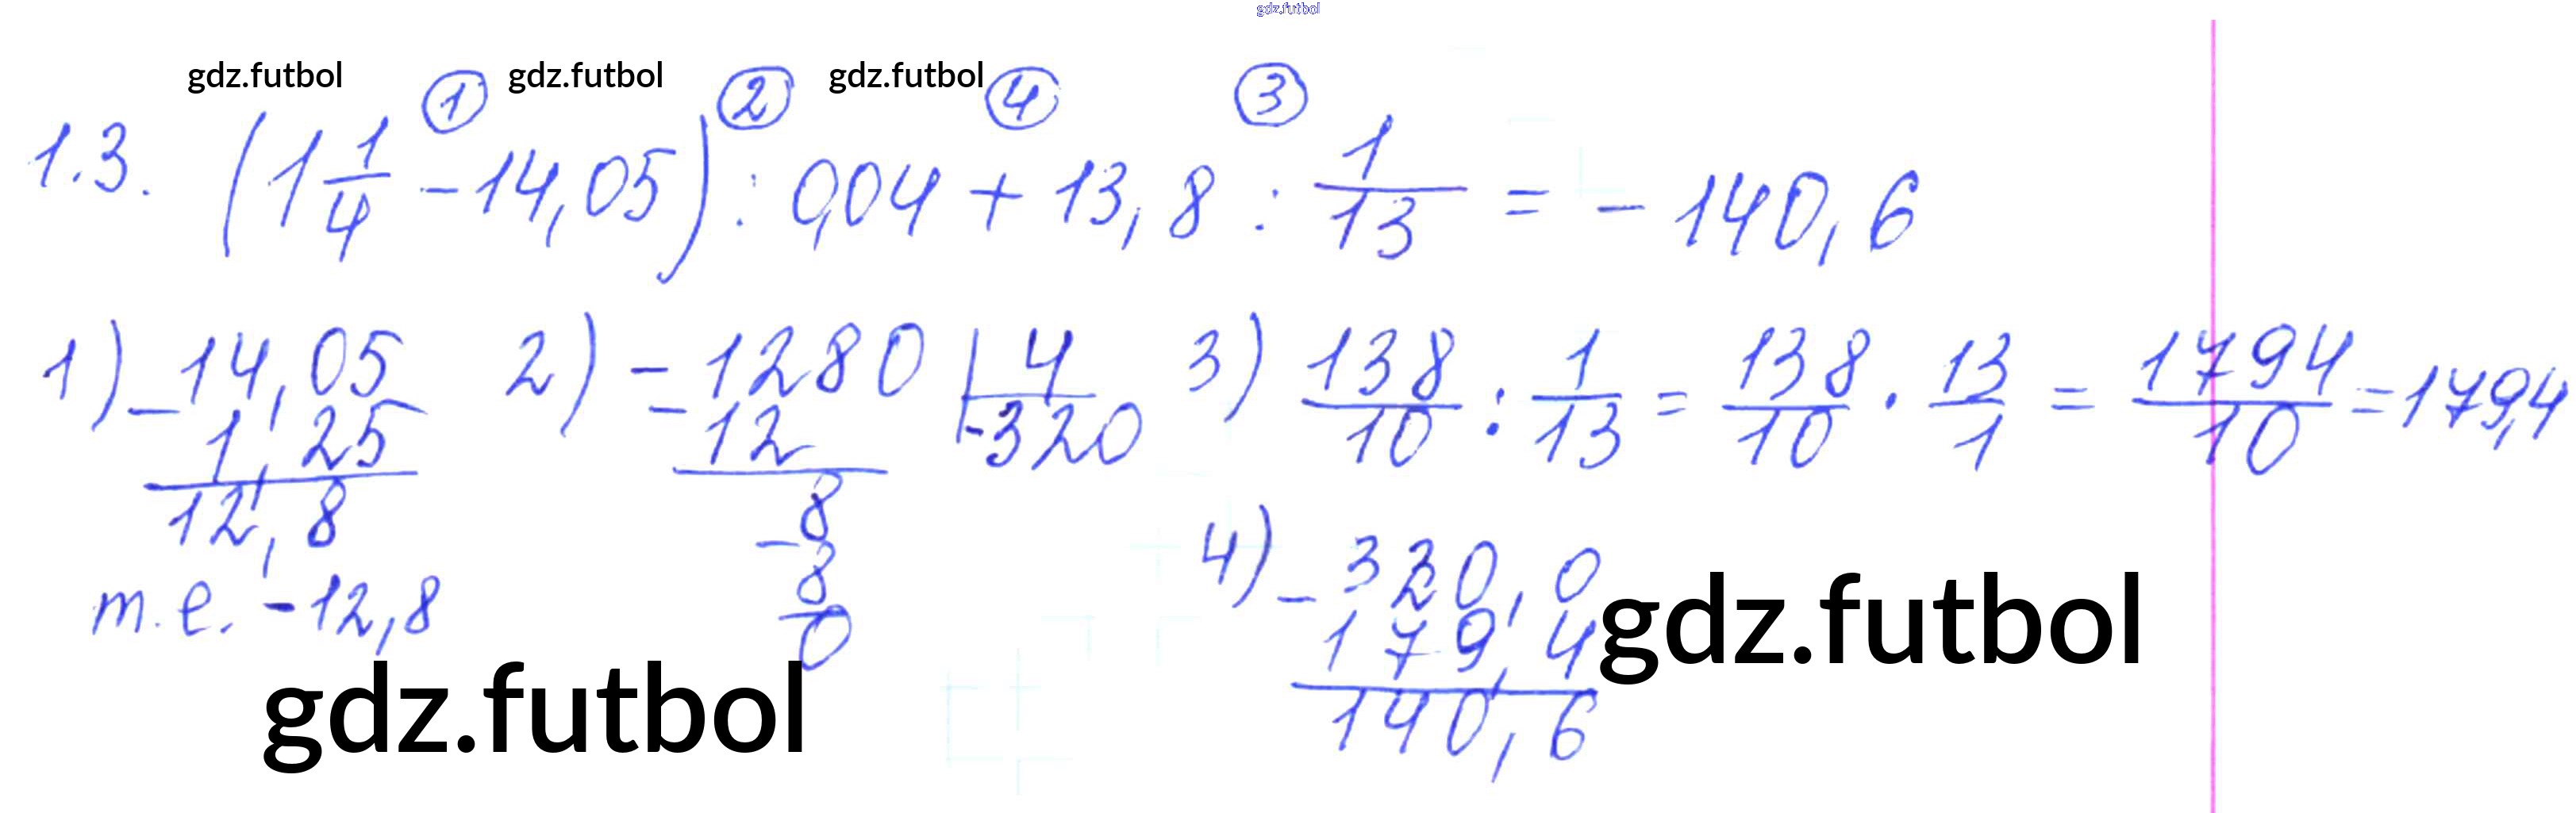 gdz.futbol
gdz.futbol gdz.futbol gdz.futbol
① ② ④ ③
1.3. (1 1/4 - 14,05) : 0,04 + 13,8 : 1/13 = - 140,6
1) - 14,05 2) - 1280 | 4 3) 138/10 : 1/13 = 138/10 · 13/1 = 1794/10 = 179,4
1,25 - 12 -320
12,8 - 8
т.е. -12,8 8
0
4) - 320,0
179,4
140,6
gdz.futbol
gdz.futbol